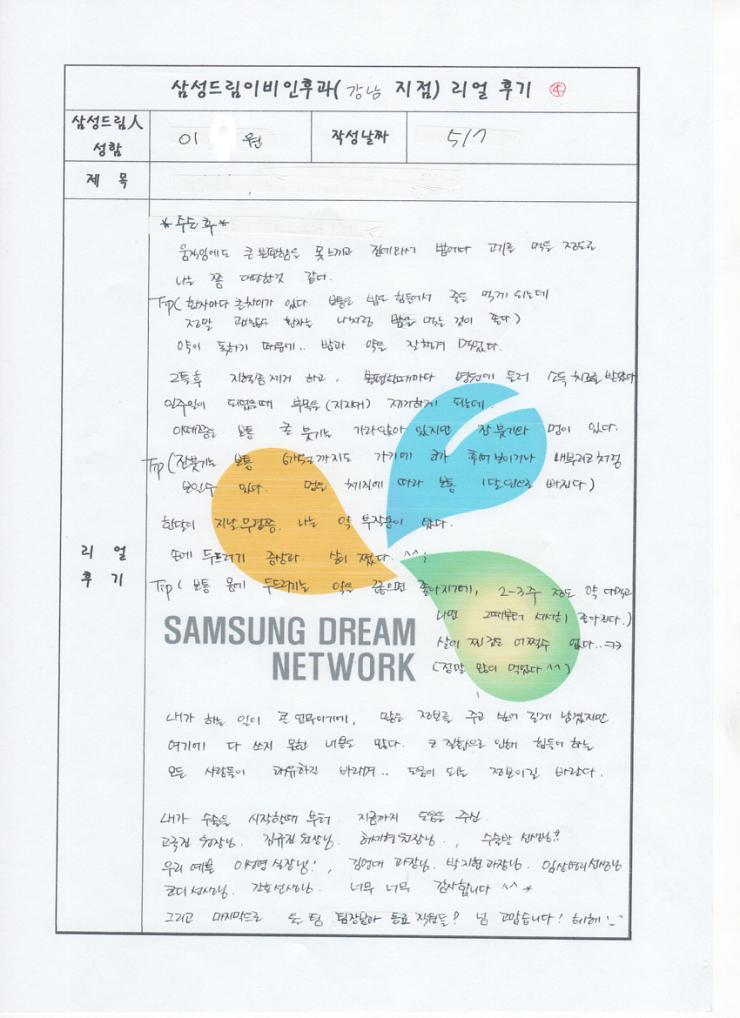 삼성드림이비인후과( 강남 지점) 리얼 후기 ④
삼성드림人 성함
이 원
작성날짜
5/7
제 목
리 얼 후 기
*수술 후*
움직임에도 큰 불편함을 못느끼고 집에와서 밥에다 고기를 먹을 정도로
나는 쫌 대단한것 같다.
Tip( 환자마다 큰차이가 있다. 보통은 밥도 힘들어서 죽을 먹게 되는데
정말 괜찮은 환자는 나처럼 밥을 먹는 것이 좋다)
약이 독하기 때문에.. 밥과 약을 잘챙겨 먹었다.
2틀후 지혈솜제거 하고, 불편할때마다 병원에 들러 소독 치료를 받았다
일주일이 되었을때 부목을(지지대) 제거하게 되는데.
이때쯤은 보통 큰 붓기는 가라앉아 있지만 잔 붓기와 멍이 있다.
Tip(잔붓기는 보통 6개월까지도 가기에 코가 휘어보이거나 매부리코처럼
보일수 있다. 멍은 체질에 따라 보통 1달안으로 빠진다)
한달이 지날 무렵쯤. 나는 약 부작용이 왔다.
손에 두드러기 증상과. 살이 쪘다. ^^;
Tip( 보통 몸에 두드러기는 약을 끊으면 좋아지기에, 2-3주 정도 약 다먹고
나면 그때부터 서서히 좋아진다.)
살이 찐 것은 어쩔수 없다..ㅋㅋ
(정말 많이 먹었다 ^^)
SAMSUNG DREAM
NETWORK
내가 하는 일이 큰 업무이기에, 많은 정보를 주고 싶어 길게 남겼지만
여기에 다 쓰지 못한 내용도 많다. 코 질환으로 인해 힘들어 하는
모든 사람들이 쾌유하길 바라며.. 도움이 되는 정보이길 바란다.
내가 수술을 시작할때 부터. 지금까지 도움을 주신
원장님. 김규진 원장님. 허세형 원장님., 수술방 선생님?
우리 예쁜 이성영 실장님!, 김연대 과장님. 박지현 과장님. 임상병리선생님
코디 선생님. 간호선생님. 너무 너무 감사합니다 ^^*
그리고 마지막으로 팀 팀장님과 동료 직원들? 넘 고맙습니다! 헤헤 :-)